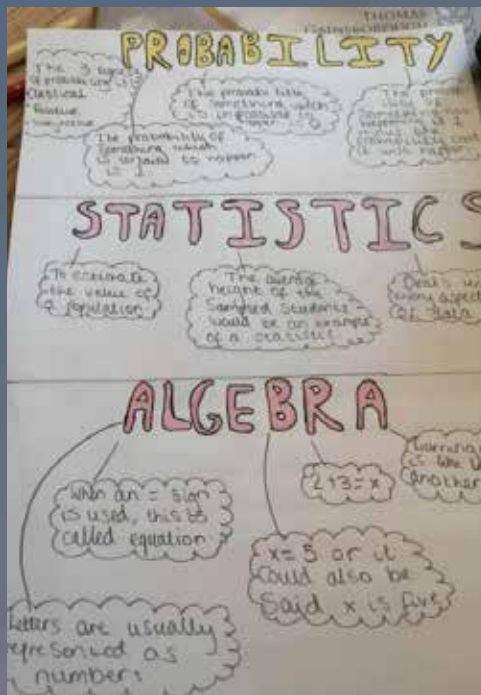 THOMAS
GAINSBOROUGH
PROBABILITY
The 3 types
of probability is
Classical
Relative
The probability
of something which
is impossible to
happen
The probability of
something which
is certain to happen
is 1
The proba
bility of
something not
happening is 1
minus the
probability that
it will happen
STATISTICS
To estimate
the value of
a population
The average
height of the
Sampled Students
would be an example
of a statistic
Deals wi
every aspect
of data
ALGEBRA
When an = sign
is used, this is
called equation
2+3=x
Learning
is like
another
x=5 or it
could also be
Said x is five
Letters are usually
represented as
numbers